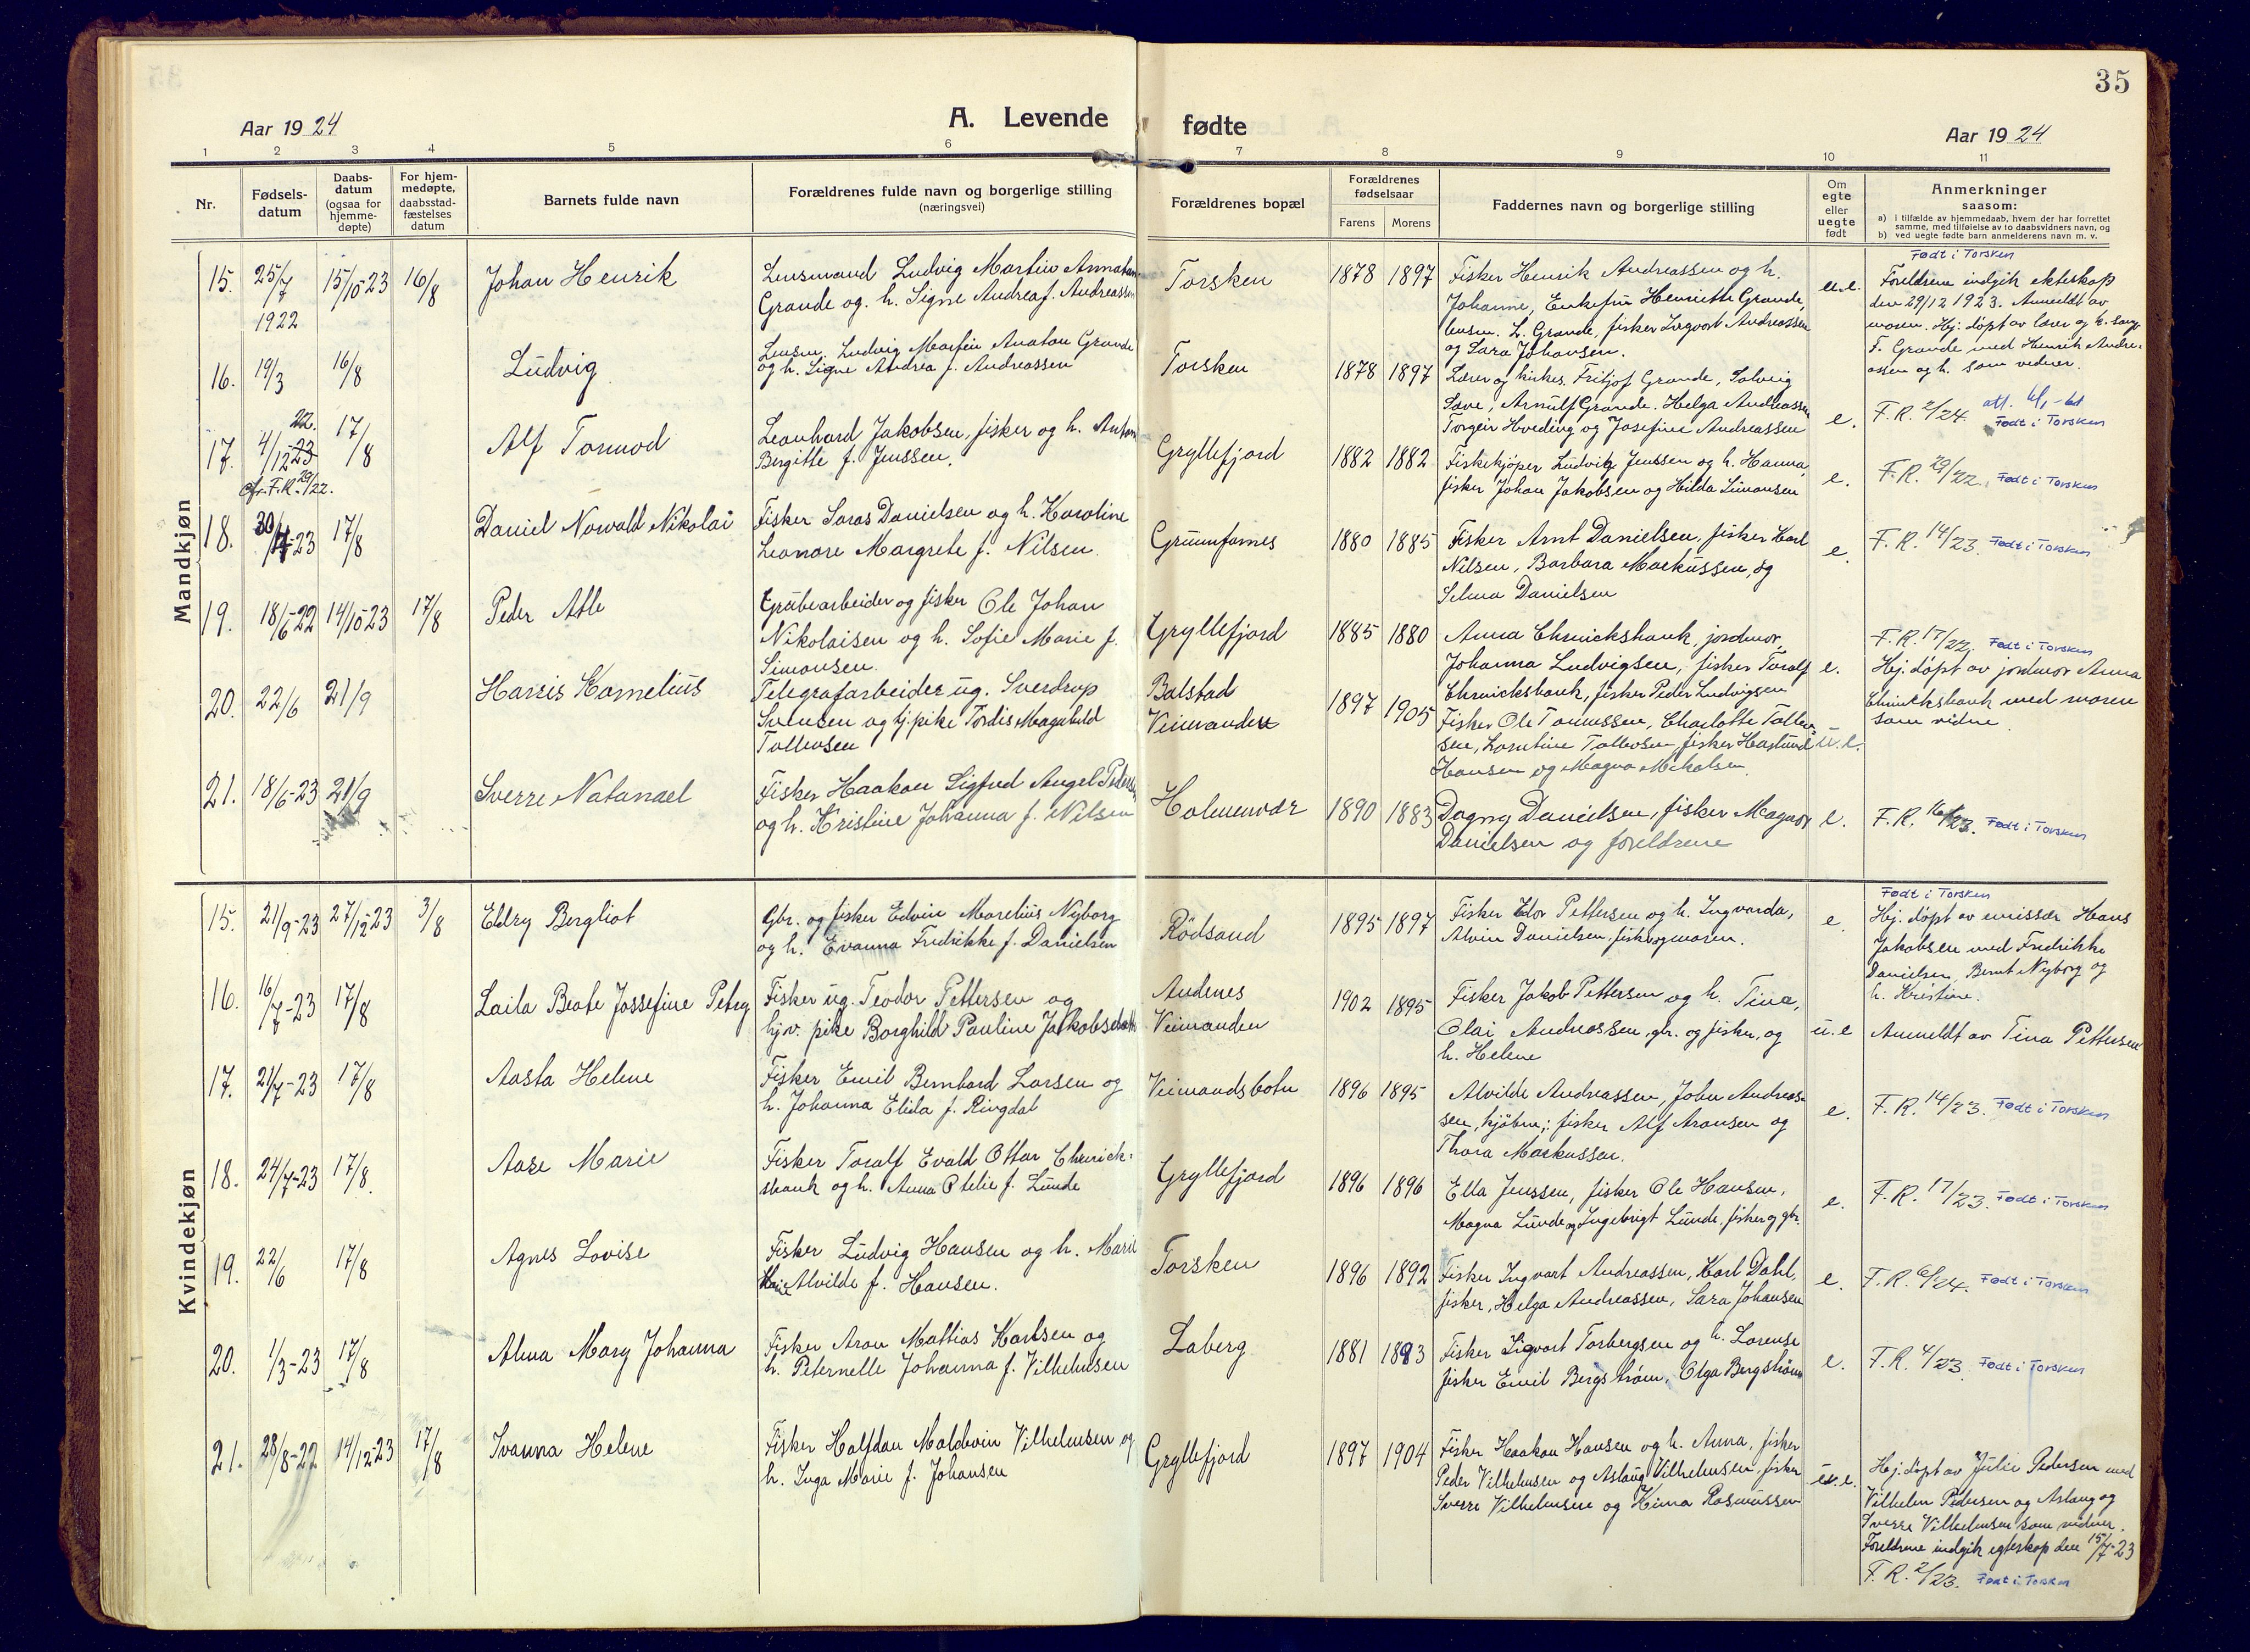 35
Aar 1924
A. Levende fødte
Aar 1924
1 2 3 4 5 6 7 8 9 10 11
Nr.
Fødsels-
datum
Daabs-
datum
(ogsaa for
hjemme-
døpte)
For hjem-
medøpte,
daabsstad-
fæstelses
datum
Barnets fulde navn
Forældrenes fulde navn og borgerlige stilling
(næringsvei)
Forældrenes bopæl
Forældrenes
fødselsaar
Farens Morens
Faddernes navn og borgerlige stilling
Om
egte
eller
uegte
født
Anmerkninger
saasom:
a) i tilfælde av hjemmedaab, hvem der har forrettet
samme, med tilføielse av to daabsvidners navn, og
b) ved uegte fødte barn anmelderens navn m. v.
Mandkjøn
15. 25/7 1922 15/10-23 16/8 Johan Henrik
Lensmand Ludvig Martin Annatan
Grande og h. Signe Andrea f. Andreassen
Torsken 1878 1897
Fisker Henrik Andreassen og h.
Johanne, Enkefru Henriette Grande,
lensm. L. Grande, fisker Ingvart Andreassen
og Sara Johansen.
u.e.
Født i Torsken
Foreldrene indgik ekteskap
den 29/12 1923. Anmeldt av
moren. Hj. døpt av lærer og k. sang.
F. Grande med Henrik Andre-
assen og h. som vidner.
16. 19/3 16/8 Ludvig
Lensm. Ludvig Martin Anatan Grande
og h. Signe Andrea f. Andreassen
Torsken 1878 1897
Lærer og kirkes. Fritjof Grande, Solveig
Sove, Arnulf Grande. Helga Andreassen
Torgeir Hveding og Josefine Andreassen
e.
F.R. 2/24.
Født i Torsken
17. 4/12-23 22. 17/8 Alf Tormod
cfr. F.R. 29/22.
Leonhard Jakobsen, fisker og h. Anton
Bergitte f. Jenssen.
Gryllefjord 1882 1882
Fiskekjøper Ludvig Jenssen og h. Hanna,
fisker Johan Jakobsen og Hilda Simonsen
e.
F.R. 29/22. Født i Torsken
18. 30/4-23 17/8 Daniel Norvald Nikolai
Fisker Saras Danielsen og h. Karoline
Leonore Margrete f. Nilsen.
Grunnfarnes 1880 1885
Fisker Arnt Danielsen, fisker Karl
Nilsen, Barbara Markussen, og
Selma Danielsen
e.
F.R. 14/23. Født i Torsken
19. 18/6-22 14/10-23 17/8 Peder Atle
Grubearbeider og fisker Ole Johan
Nikolaisen og h. Sofie Marie f.
Simonsen.
Gryllefjord 1885 1880
Anna Chruickshank, jordmor,
Johanna Ludvigsen, fisker Toralf
Chruickshank, fisker Peder Ludvigsen
e.
F.R. 17/22. Født i Torsken
Hj. døpt av jordmor Anna
Chruickshank med moren
som vidne
20. 22/6 21/9 Harris Kornelius
Telegrafarbeider ug. Sverdrup
Svensen og tj. pike Tordis Magnhild
Tollevsen
Balstad
Veimanden
1897 1905
Fisker Ole Tommssen, Charlotte Tollev-
sen, Lorntine Tollevsen, fisker Hartvid
Hansen og Magna Mikalsen.
u.e.
21. 18/6-23 21/9 Sverre Natanael
Fisker Haakon Sigfred Angel Pedersen
og h. Kristine Johanna f. Nilsen
Holmenvær 1890 1883
Dagny Danielsen, fisker Magnor
Danielsen og foreldrene
e.
F.R. 16/23. Født i Torsken
Kvindekjøn
15. 21/9-23 27/12-23 3/8 Eldry Bergliot
Gbr. og fisker Edvin Marelius Nyborg
og h. Evanna Fredrikke f. Danielsen
Rödsand 1895 1897
Fisker Edor Pettersen og h. Ingvarda,
Alvin Danielsen, fisker og moren.
e.
Født i Torsken
Hj. døpt av emissær Hans
Jakobsen med Fredrikke
Danielsen, Bernt Nyborg og
h. Kristine.
16. 16/7-23 17/8 Laila Beate Jossefine Petry
Fisker ug. Teodor Pettersen og
hjv. pike Borghild Pauline Jakobsdatter
Andenes
Veimanden
1902 1895
Fisker Jakob Pettersen og h. Tina,
Olai Andreassen, gbr. og fisker, og
h. Helene
u.e
Anmeldt av Tina Pettersen
17. 21/7-23 17/8 Aasta Helene
Fisker Emil Bernhard Larsen og
h. Johanna Elida f. Ringdal
Veimandsbotn 1896 1895
Alvilde Andreassen, John Andreas-
sen, kjøbm., fisker Alf Aronsen og
Thora Markussen.
e.
F.R. 14/23. Født i Torsken
18. 24/7-23 17/8. Aase Marie
Fisker Toralf Evald Ottar Chruick-
shank og h. Anna Otelie f. Lunde
Gryllefjord 1896 1896
Ella Jenssen, fisker Ole Hansen,
Magna Lunde og Ingebrigt Lunde, fisker og gbr.
e.
F.R. 17/23. Født i Torsken
19. 22/6 17/8 Agnes Lovise
Fisker Ludvig Hansen og h. Marie
Alvilde f. Hansen.
Torsken 1896 1892
Fisker Ingvart Andreassen, Karl Dahl,
fisker, Helga Andreassen, Sara Johansen
e.
F.R. 6/24. Født i Torsken
20. 1/3-23 17/8 Alma Mary Johanna
Fisker Aron Mattias Karlsen og
h. Peternelle Johanna f. Vilhelmsen
Laberg 1881 1893
Fisker Sigvart Torbergsen og h. Lorense
fisker Emil Bergstrøm, Olga Bergstrøm
e.
F.R. 4/23. Født i Torsken
21. 28/8-22 14/12-23 17/8 Ivanna Helene
Fisker Halfdan Maldovin Vilhelmsen og
h. Inga Marie f. Johansen
Gryllefjord 1897 1904
Fisker Haakon Hansen og h. Anna, fisker
Peder Vilhelmsen og Aslaug Vilhelmsen, fisker
Sverre Vilhelmsen og Rasmussen
u.e.
Hj. døpt av Julie Pedersen med
Vilhelm Pedersen og Aslaug og
Sverre Vilhelmsen som vidner.
Foreldrene indgik egteskap den 15/7-23
F.R. 2/23. Født i Torsken